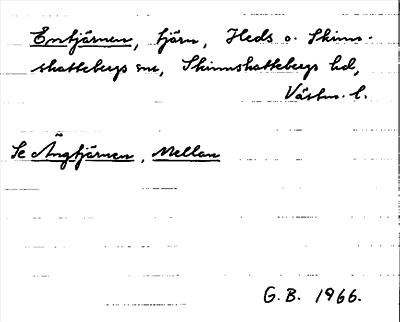 Entjärnen, tjärn, Heds o. Skinn-
skattebergs snr, Skinnskattebergs hd,
Västm. l.
Se Ängtjärnen, Mellan
G. B. 1966.